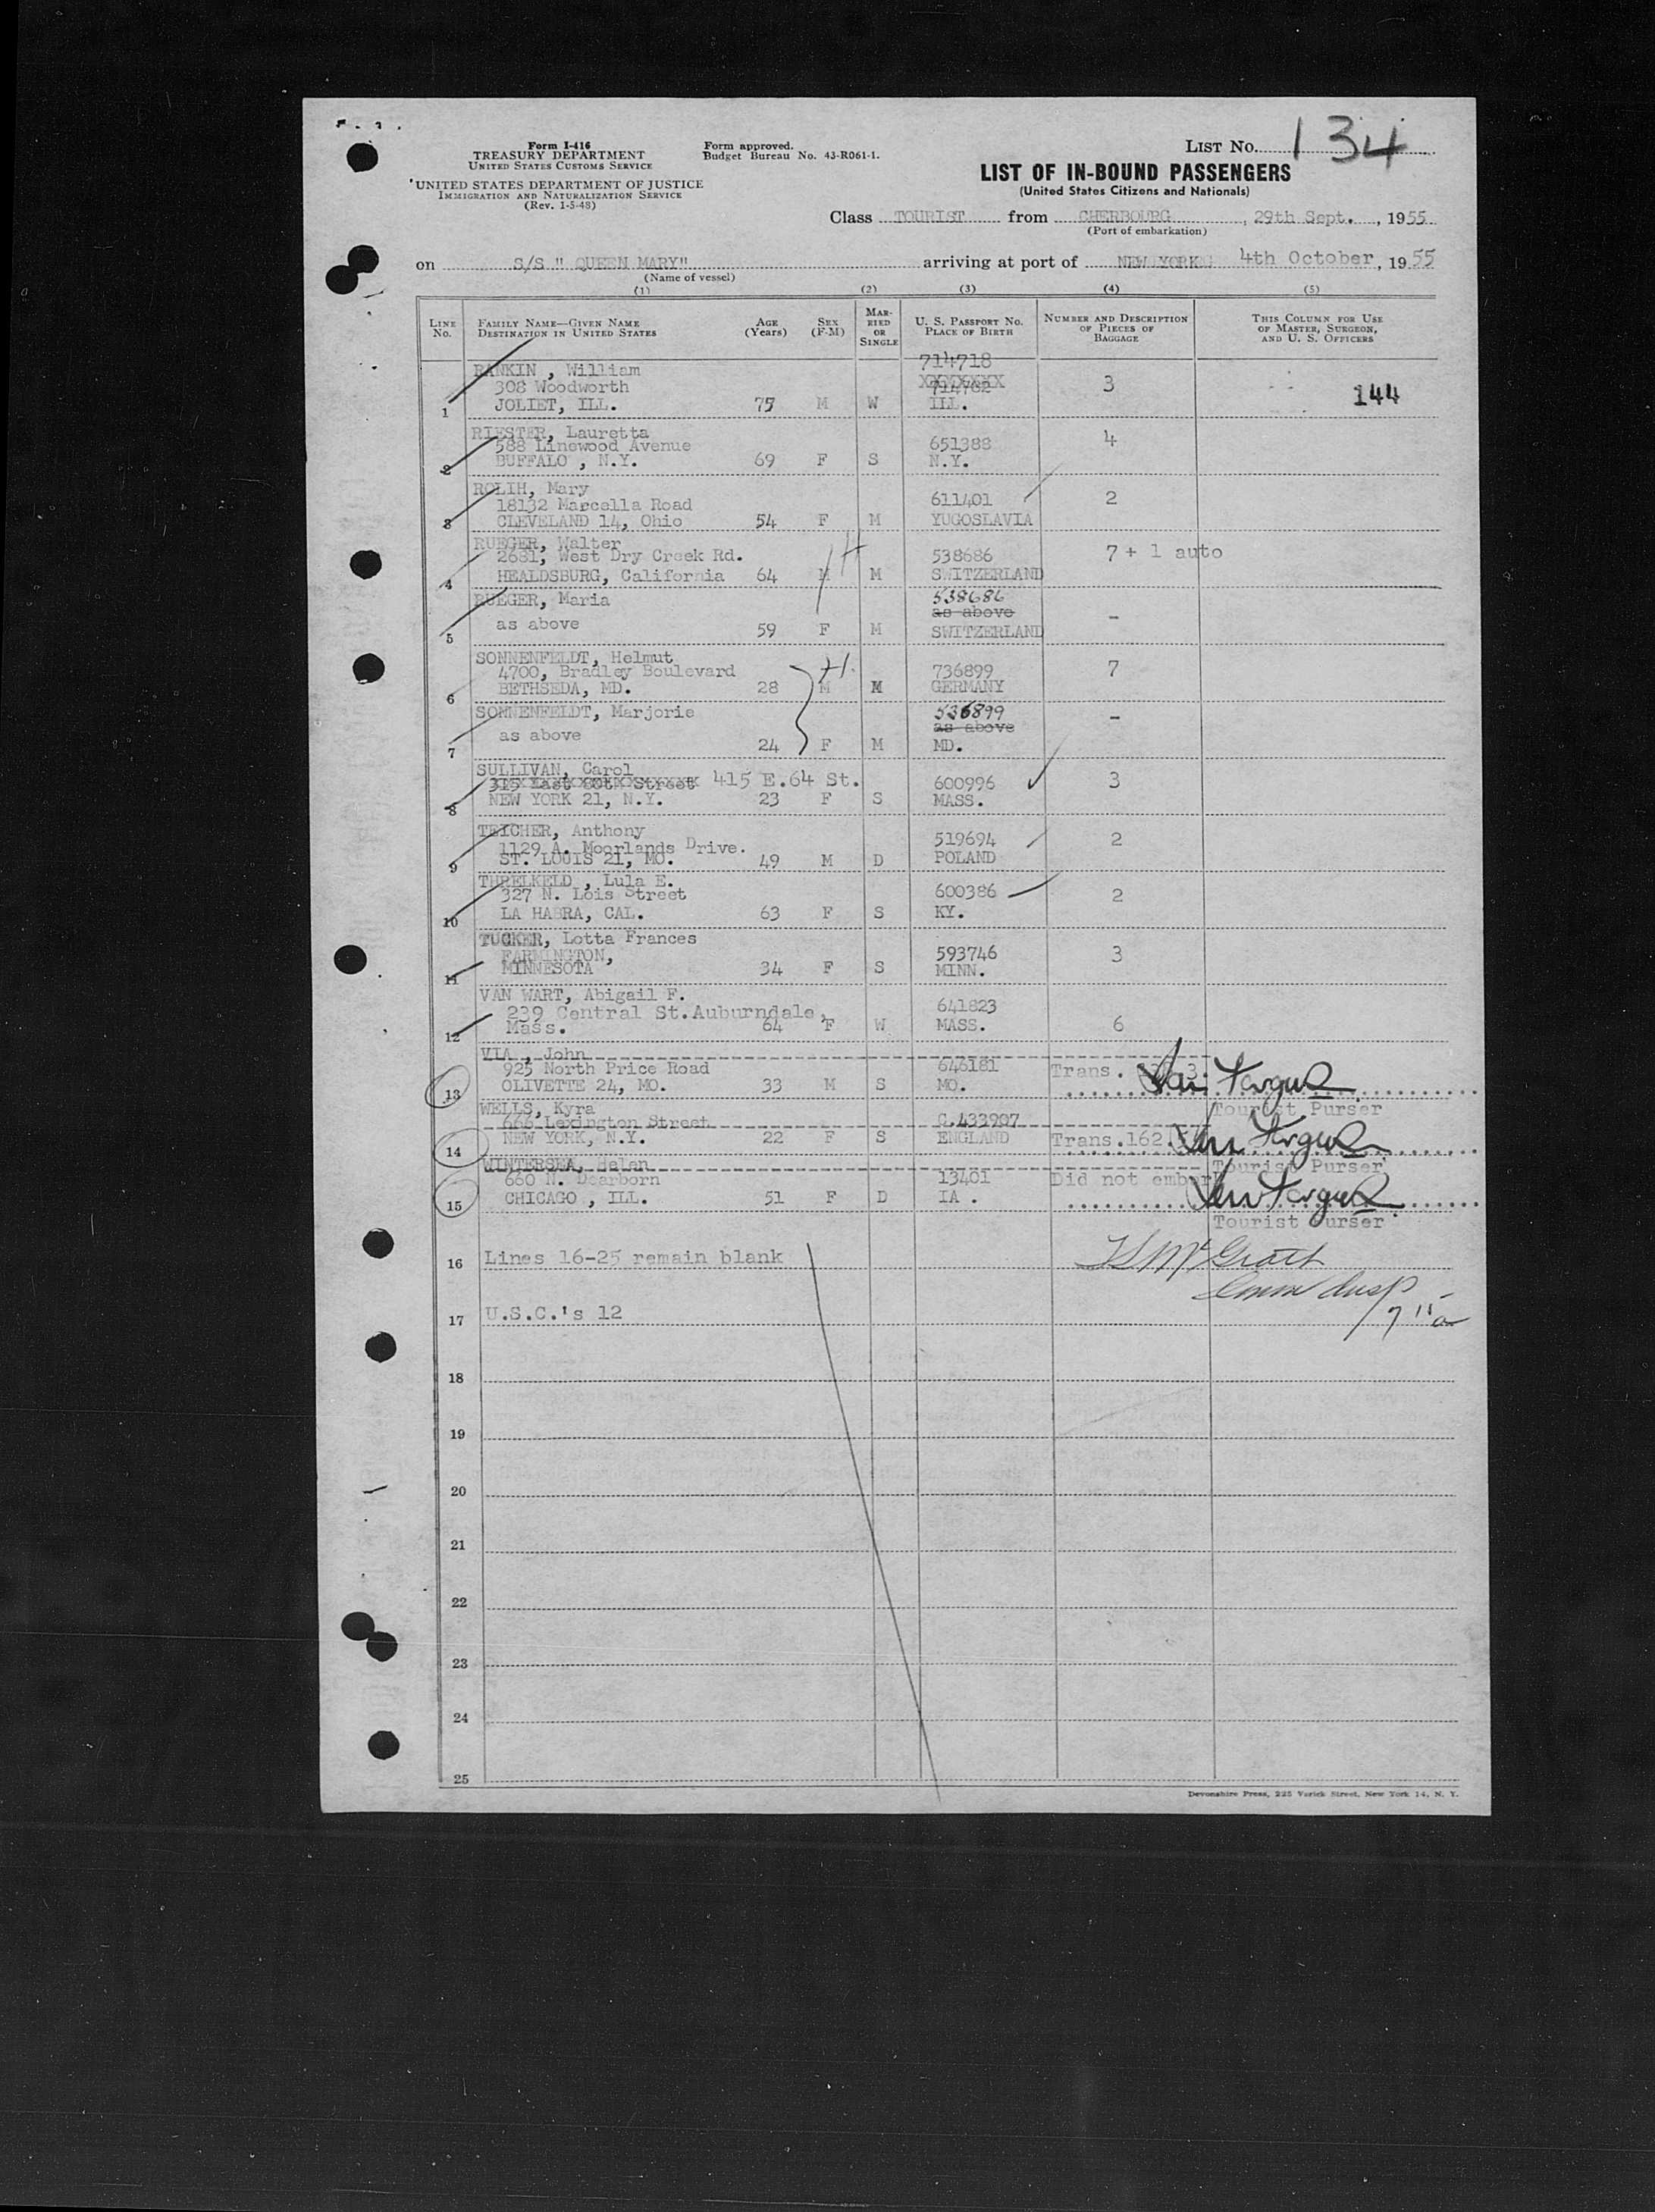 Form I-416
TREASURY DEPARTMENT
UNITED STATES CUSTOMS SERVICE
UNITED STATES DEPARTMENT OF JUSTICE
IMMIGRATION AND NATURALIZATION SERVICE
(Rev. 1-5-48)
Form approved.
Budget Bureau No. 43-R061-1.
LIST NO. 134
LIST OF IN-BOUND PASSENGERS
(United States Citizens and Nationals)
Class TOURIST from CHERBOURG, 29th Sept., 1955
(Port of embarkation)
on S/S " QUEEN MARY" arriving at port of NEW YORK 4th October, 1955
(Name of vessel)
(1) (2) (3) (4) (5)
LINE NO.
FAMILY NAME—GIVEN NAME
DESTINATION IN UNITED STATES
AGE (Years)
SEX (F-M)
MARRIED OR SINGLE
U. S. PASSPORT NO.
PLACE OF BIRTH
NUMBER AND DESCRIPTION OF PIECES OF BAGGAGE
THIS COLUMN FOR USE OF MASTER, SURGEON, AND U. S. OFFICERS
714718
RANKIN , William
308 Woodworth 3
1 JOLIET, ILL. 75 M W ILL. 144
RIESTER, Lauretta 4
588 Linewood Avenue 651388
2 BUFFALO , N.Y. 69 F S N.Y.
ROLIH, Mary
18132 Marcella Road 611401 2
3 CLEVELAND 14, Ohio 54 F M YUGOSLAVIA
RUEGER, Walter
2681, West Dry Creek Rd. 538686 7 + 1 auto
4 HEALDSBURG, California 64 M M SWITZERLAND
RUEGER, Maria 538686
as above as above -
5 59 F M SWITZERLAND
SONNENFELDT, Helmut H.
4700, Bradley Boulevard 736899 7
6 BETHSEDA, MD. 28 M M GERMANY
SONNENFELDT, Marjorie 536899
as above as above -
7 24 F M MD.
SULLIVAN, Carol
415 E.64 St. 600996 3
8 NEW YORK 21, N.Y. 23 F S MASS.
TEICHER, Anthony
1129 A. Moorlands Drive. 519694 2
9 ST. LOUIS 21, MO. 49 M D POLAND
THRELKELD , Lula E.
327 N. Lois Street 600386 2
10 LA HABRA, CAL. 63 F S KY.
TUCKER, Lotta Frances
FARMINGTON, 593746 3
11 MINNESOTA 34 F S MINN.
VAN WART, Abigail F.
239 Central St.Auburndale, 641823
12 Mass. 64 F W MASS. 6
VIA , John
925 North Price Road 646181 Trans.
13 OLIVETTE 24, MO. 33 M S MO.
WELLS, Kyra Tourist Purser
666 Lexington Street C.433907
14 NEW YORK, N.Y. 22 F S ENGLAND Trans.162.
WINTERSEA, Helen Tourist Purser
660 N. Dearborn 13401 Did not embark
15 CHICAGO , ILL. 51 F D IA .
Tourist Purser
16 Lines 16-25 remain blank
17 U.S.C.'s 12
18
19
20
21
22
23
24
25
Devonshire Press, 225 Varick Street, New York 14, N. Y.